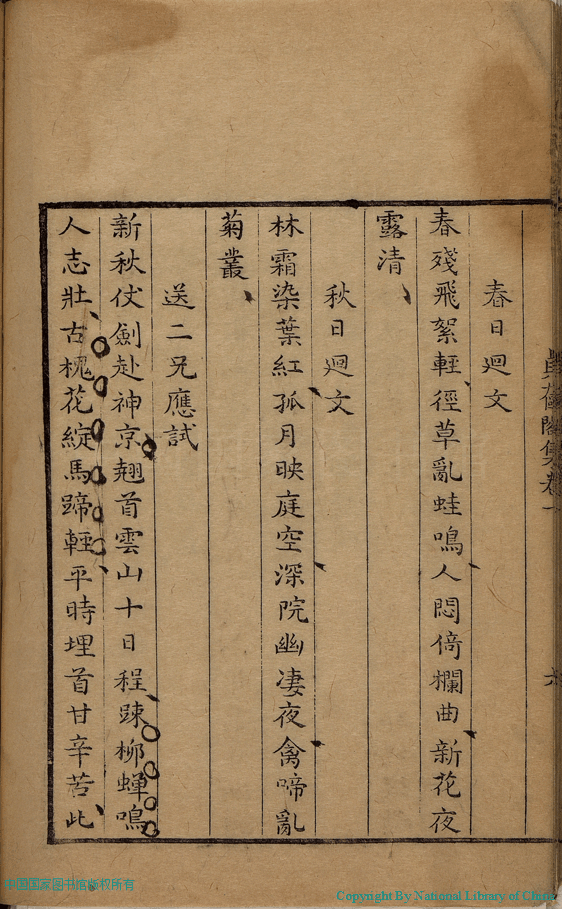 春日迴文
春殘飛絮輕徑草亂蛙鳴人悶倚欄曲新花夜
露清
秋日迴文
林霜染葉紅孤月映庭空深院幽凄夜禽啼亂
菊叢
送二兄應試
新秋仗劍赴神京翹首雲山十日程踈柳蟬鳴
人志壯古槐花綻馬蹄輕平時埋首甘辛苦此
閣集卷一
六
中国国家图书馆版权所有
Copyright By National Library of China